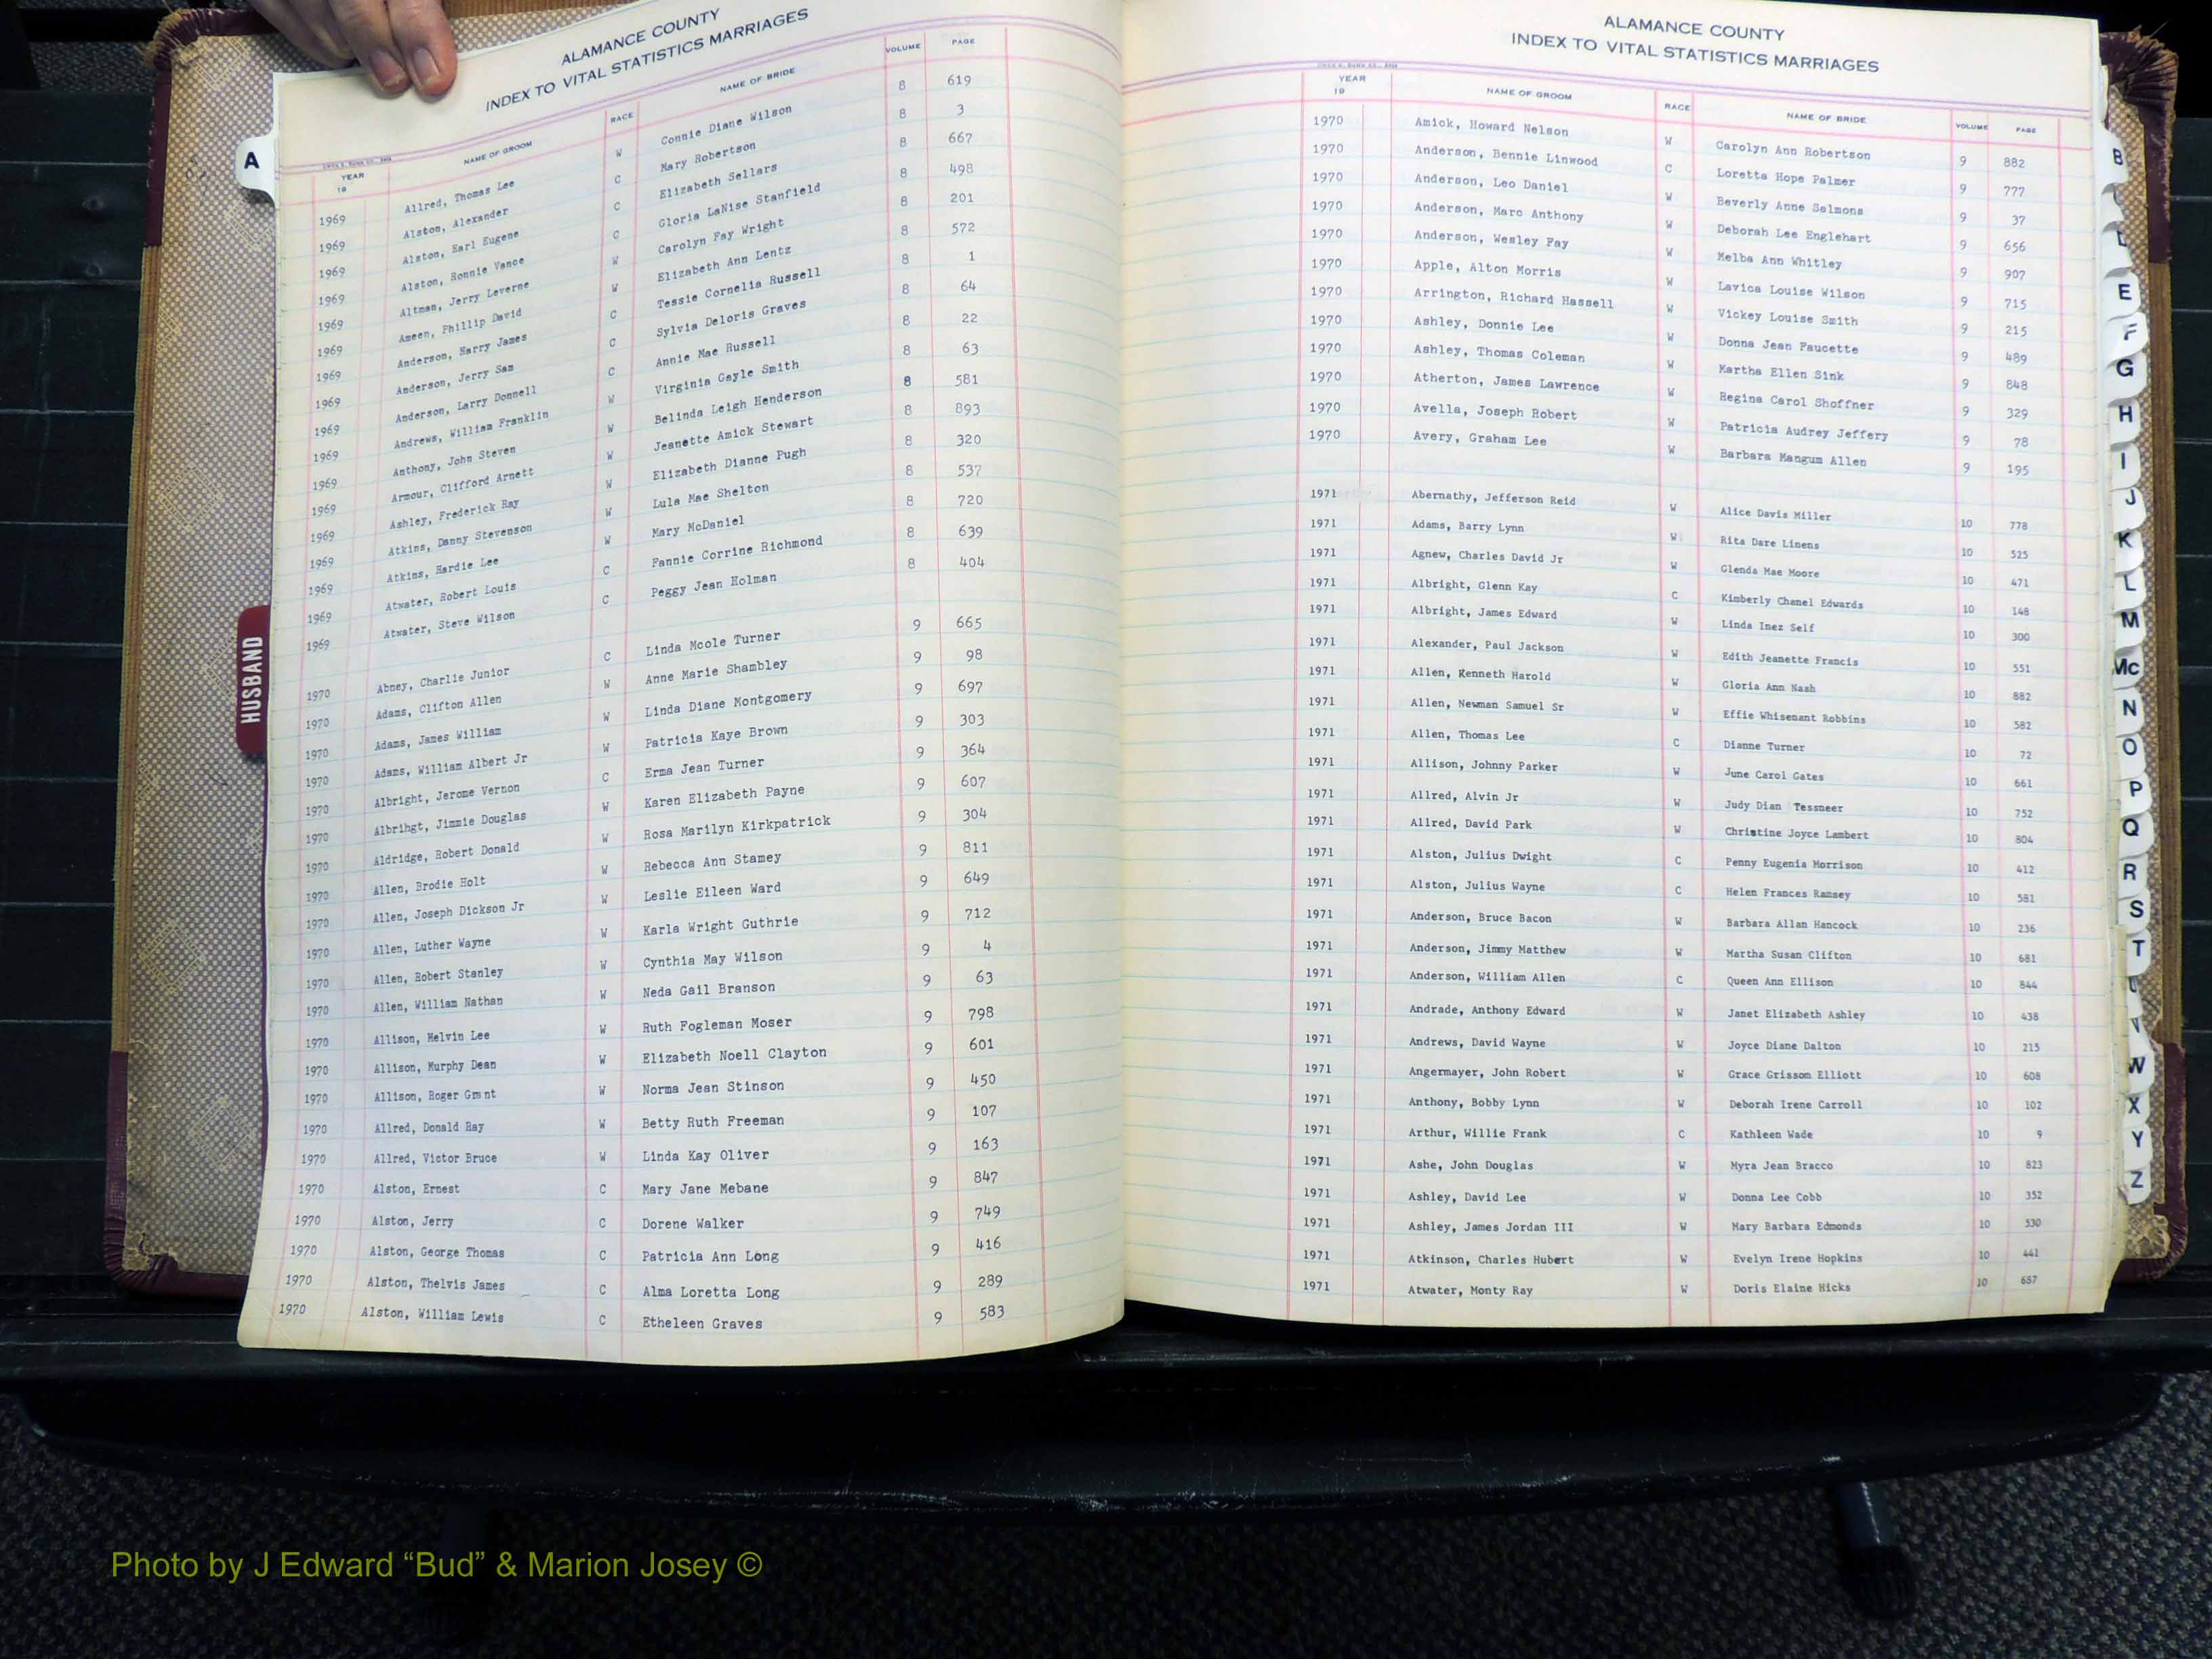 ALAMANCE COUNTY
INDEX TO VITAL STATISTICS MARRIAGES
YEAR 19 NAME OF GROOM RACE NAME OF BRIDE VOLUME PAGE
1969 Allred, Thomas Lee W Connie Diane Wilson 8 619
1969 Alston, Alexander C Mary Robertson 8 3
1969 Alston, Earl Eugene C Elizabeth Sellars 8 667
1969 Alston, Ronnie Vance C Gloria LaNise Stanfield 8 498
1969 Altman, Jerry Leverne W Carolyn Fay Wright 8 201
1969 Ameen, Phillip David W Elizabeth Ann Lentz 8 572
1969 Anderson, Harry James C Tessie Cornelia Russell 8 1
1969 Anderson, Jerry Sam C Sylvia Deloris Graves 8 64
1969 Anderson, Larry Donnell C Annie Mae Russell 8 22
1969 Andrews, William Franklin W Virginia Gayle Smith 8 63
1969 Anthony, John Steven W Belinda Leigh Henderson 8 581
1969 Armour, Clifford Arnett W Jeanette Amick Stewart 8 893
1969 Ashley, Frederick Ray W Elizabeth Dianne Pugh 8 320
1969 Atkins, Danny Stevenson W Lula Mae Shelton 8 537
1969 Atkins, Hardie Lee W Mary McDaniel 8 720
1969 Atwater, Robert Louis C Fannie Corrine Richmond 8 639
1969 Atwater, Steve Wilson C Peggy Jean Holman 8 404
1970 Abney, Charlie Junior C Linda Mcole Turner 9 665
1970 Adams, Clifton Allen W Anne Marie Shambley 9 98
1970 Adams, James William W Linda Diane Montgomery 9 697
1970 Adams, William Albert Jr W Patricia Kaye Brown 9 303
1970 Albright, Jerome Vernon C Erma Jean Turner 9 364
1970 Albrihgt, Jimmie Douglas W Karen Elizabeth Payne 9 607
1970 Aldridge, Robert Donald W Rosa Marilyn Kirkpatrick 9 304
1970 Allen, Brodie Holt W Rebecca Ann Stamey 9 811
1970 Allen, Joseph Dickson Jr W Leslie Eileen Ward 9 649
1970 Allen, Luther Wayne W Karla Wright Guthrie 9 712
1970 Allen, Robert Stanley W Cynthia May Wilson 9 4
1970 Allen, William Nathan W Neda Gail Branson 9 63
1970 Allison, Melvin Lee W Ruth Fogleman Moser 9 798
1970 Allison, Murphy Dean W Elizabeth Noell Clayton 9 601
1970 Allison, Roger Grant W Norma Jean Stinson 9 450
1970 Allred, Donald Ray W Betty Ruth Freeman 9 107
1970 Allred, Victor Bruce W Linda Kay Oliver 9 163
1970 Alston, Ernest C Mary Jane Mebane 9 847
1970 Alston, Jerry C Dorene Walker 9 749
1970 Alston, George Thomas C Patricia Ann Long 9 416
1970 Alston, Thelvis James C Alma Loretta Long 9 289
1970 Alston, William Lewis C Etheleen Graves 9 583
A
HUSBAND
ALAMANCE COUNTY
INDEX TO VITAL STATISTICS MARRIAGES
YEAR 19 NAME OF GROOM RACE NAME OF BRIDE VOLUME PAGE
1970 Amick, Howard Nelson W Carolyn Ann Robertson 9 882
1970 Anderson, Bennie Linwood C Loretta Hope Palmer 9 777
1970 Anderson, Leo Daniel W Beverly Anne Salmons 9 37
1970 Anderson, Marc Anthony W Deborah Lee Englehart 9 656
1970 Anderson, Wesley Fay W Melba Ann Whitley 9 907
1970 Apple, Alton Morris W Lavica Louise Wilson 9 715
1970 Arrington, Richard Hassell W Vickey Louise Smith 9 215
1970 Ashley, Donnie Lee W Donna Jean Faucette 9 489
1970 Ashley, Thomas Coleman W Martha Ellen Sink 9 848
1970 Atherton, James Lawrence W Regina Carol Shoffner 9 329
1970 Avella, Joseph Robert W Patricia Audrey Jeffery 9 78
1970 Avery, Graham Lee W Barbara Mangum Allen 9 195
1971 Abernathy, Jefferson Reid W Alice Davis Miller 10 778
1971 Adams, Barry Lynn W Rita Dare Linens 10 525
1971 Agnew, Charles David Jr W Glenda Mae Moore 10 471
1971 Albright, Glenn Kay C Kimberly Chanel Edwards 10 148
1971 Albright, James Edward W Linda Inez Self 10 300
1971 Alexander, Paul Jackson W Edith Jeanette Francis 10 551
1971 Allen, Kenneth Harold W Gloria Ann Nash 10 882
1971 Allen, Newman Samuel Sr W Effie Whisenant Robbins 10 582
1971 Allen, Thomas Lee C Dianne Turner 10 72
1971 Allison, Johnny Parker W June Carol Gates 10 661
1971 Allred, Alvin Jr W Judy Dian Tessneer 10 752
1971 Allred, David Park W Christine Joyce Lambert 10 804
1971 Alston, Julius Dwight C Penny Eugenia Morrison 10 412
1971 Alston, Julius Wayne C Helen Frances Ramsey 10 581
1971 Anderson, Bruce Bacon W Barbara Allan Hancock 10 236
1971 Anderson, Jimmy Matthew W Martha Susan Clifton 10 681
1971 Anderson, William Allen C Queen Ann Ellison 10 844
1971 Andrade, Anthony Edward W Janet Elizabeth Ashley 10 438
1971 Andrews, David Wayne W Joyce Diane Dalton 10 215
1971 Angermayer, John Robert W Grace Grissom Elliott 10 608
1971 Anthony, Bobby Lynn W Deborah Irene Carroll 10 102
1971 Arthur, Willie Frank C Kathleen Wade 10 9
1971 Ashe, John Douglas W Myra Jean Bracco 10 823
1971 Ashley, David Lee W Donna Lee Cobb 10 352
1971 Ashley, James Jordan III W Mary Barbara Edmonds 10 530
1971 Atkinson, Charles Hubert W Evelyn Irene Hopkins 10 441
1971 Atwater, Monty Ray W Doris Elaine Hicks 10 657
B
E
F
G
H
I
J
K
L
M
Mc
N
O
P
Q
R
S
T
U
V
W
X
Y
Z
Photo by J Edward “Bud” & Marion Josey ©